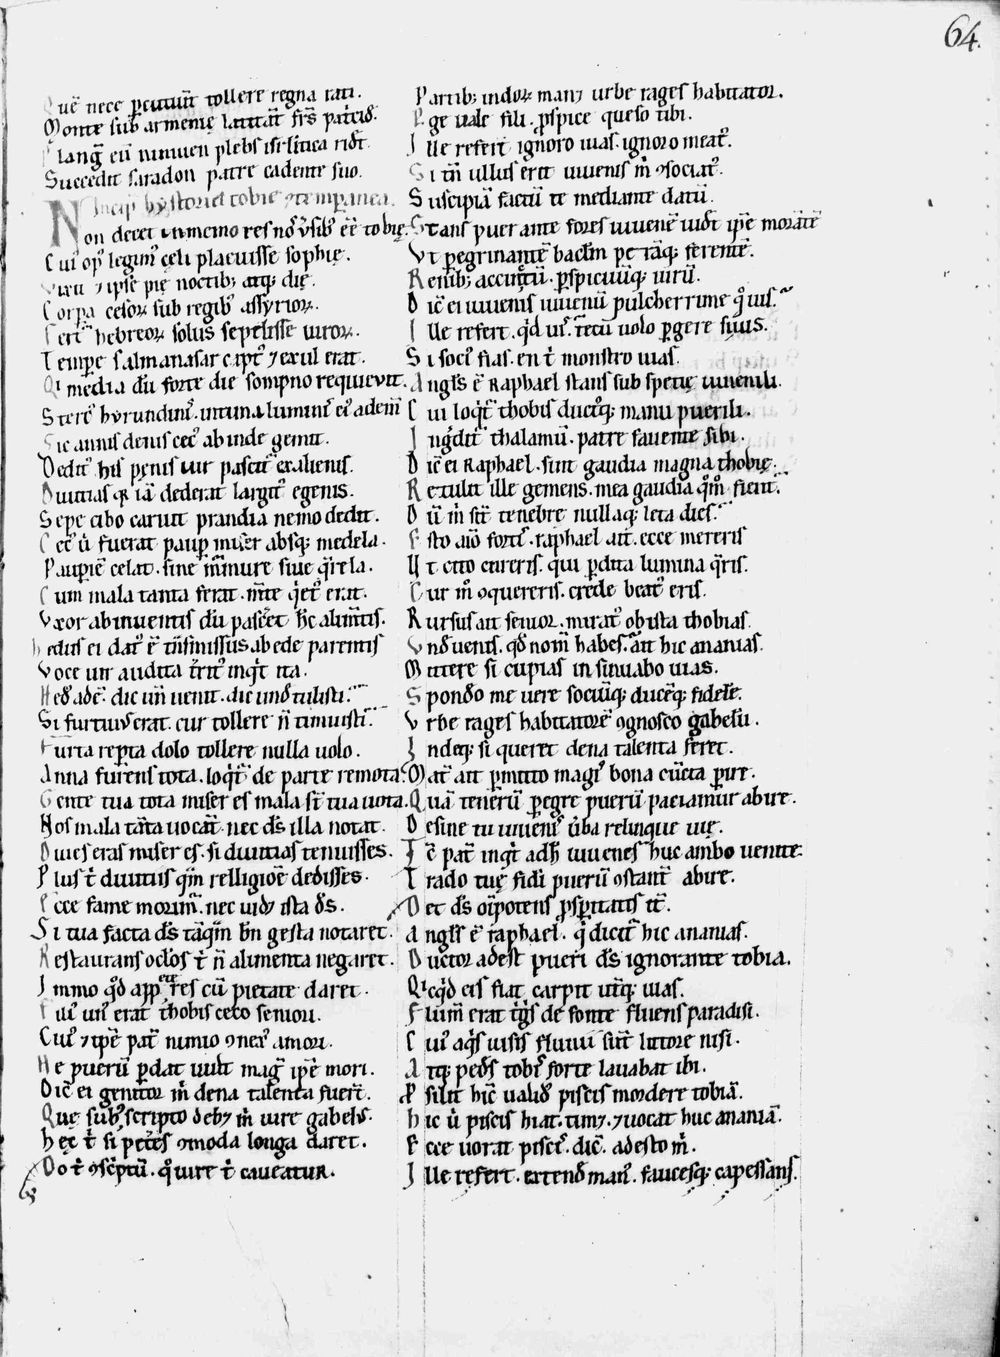 64.
Quē nece ꝑcutiūt tollere regna rati.
Monte sub armenię latitāt frs̄ pat̾cid̾.
Planḡ eū niniuen plebs isrlitica ridt̄
Succedit saradon patre cadente suo.
Incip̄ hystoriæ tobie
Non decet
Cui᷒ op᷒ legim᷒ cęli placuisse sophię.
⁊ ipse pię noctib; atq; dię.
Corpa cesoꝝ sub regib᷒ assyrioꝝ.
hebreoꝝ solus sepelisse uiroꝝ.
Tempe salmanasar capt᷒ ⁊ exul erat.
Qi media dū forte die sompno requieuit.
Stercꝰ hyrundinꝰ intima luminꝰ eiꝰ ademit̄
Sic annis denis cecꝰ abinde gemit.
Deditꝰ his pęnis uir pascitꝰ ex alienis.
Diuitias qꝛ iā dederat largitꝰ egenis.
Sepe cibo caruit prandia nemo dedit.
Cecꝰ ů fuerat paup̄ miser absq; medela.
Paupiē celat. sine m̄mure siue q̾rela.
Cum mala tanta ferat. m̄te q̇etꝰ erat.
Vxor ab inuentis dū pasc̄et hc̄ alim̄tis.
hedus ei datꝰ ē t̄nsmissus ab ede parentis
Voce uir audita t̄ritꝰ inq̇t ita.
Hedꝰ adē. dic uñ uenit. dic unď tulisti.
Si furtiuꝰ erat. cur tollere ñ timuisti.
Furta repta dolo tollere nulla uolo.
Anna furens tota. loq̇t̾ de parte remota.
Gente tua tota miser es mala st̄ tua uota.
Hos mala tāta uocāt. nec ds̄ illa notat.
Diues eras miser es. si diuitias tenuisses.
Plus t̾ diuitiis qm̄ relligioē dedisses.
Ecce fame morim̾. nec uidꝫ ista ds̄.
Si tua facta ds̄ tāqm̄ bn̄ gesta notaret.
Restaurans ocl̾os t̾ ñ alimenta negaret.
Immo qd̾ app̾etēres cū pietate daret.
Cui᷒ un᷒ erat thobis ceco seniori.
Cui᷒ ⁊ ipē pat̾ nimio ɔnexꝰ amori.
He puerū pdat uult mag̾ ipē mori.
Dic̄ ei genitor m̄ dena talenta fuer̄t.
Que sub scripto debꝫ m̄ uire gabelꝰ.
hęc t̾ si petes ɔmoda longa daret.
Do t̾ ɔscptū. q̊ uire t̾ caueatur.
Partib; indoꝝ manꝫ urbe rages habitator.
Ege uale fili. ꝓspice queso tibi.
Ille refert ignoro uias. ignoro meatꝰ.
Si tn̄ ullus erit iuuenis m̄ ɔsociatꝰ.
Suscipiā factū te mediante datū.
Stans puer ante fores iuuenē uidt̄ ipē morātē
Vt pegrinantē baclm̄ pera̅q; ferentē.
Renib; accinctū. ꝓspicuūq; uirū.
Dic̄ ei iuuenis iuuenū pulcherrime q̊ uis.
Ille refert. qd̾ uis. tecū uolo pergere suus.
Si sociꝰ fias. en t̾ monstro uias.
Angls̄ ē Raphael stans sub spetię iuuenili.
Cui loq̇t̾ thobis ducit̾q; manu puerili.
Ing̾dit̾ thalamū. patre fauente sibi.
Dic̄ ei Raphael. sint gaudia magna thobię.
Retulit ille gemens. mea gaudia qm̊ fient.
Dū m̄ st̄ tenebre nullaq; leta dies.
Esto aīo fortꝰ. raphael ait. ecce mereris
Ut cito cureris. qui pdita lumina q̾ris.
Cur m̊ ɔquereris. crede beatꝰ eris.
Rursus ait senior. miratꝰ ob ista thobias.
Vnď uenis. qď nom̄ habes. ait hic ananias.
Mittere si cupias insinuabo uias.
Spondeo me uere sociūq; ducēq; fidelē.
Vrbe rages habitatorē ɔgnosco gabelū.
Indeq; si queret dena talenta feret.
Mat̾ ait pmitto magis bona cūcta pire.
Quā tenerū pegre puerū paciamur abire.
Desine tu iuueniꝰ ůba relinque uię.
Tc̄ pat̾ inq̇t adh̄ iuuenes huc ambo uenite.
Trado tuę fidi puerū ɔstant̾ abire.
Det ds̄ oīpotens ꝓspitatis it̾.
Angls̄ ē raphael. q̇ dicit̾ hic ananias.
Ductor adest pueri ds̄ ignorante tobia.
Qicq̇d eis fiat carpit ut̾q; uias.
Flum̄ erat tig̾s de fonte fluens paradisi.
Cuiꝰ aq̇s uisis fluuii sunt̾ littore nisi.
Atq; pedꝰs tobiꝰ forte lauabat ibi.
Psilit hic̄ ualidꝰ piscis mordere tobiā.
hic ů piscis hiat. timꝫ. ⁊ uocat huc ananiā.
Ecce uorat piscꝰ. dic̄. adesto m̄.
Ille refert. extendꝰ manꝰ. faucesq; capessans.